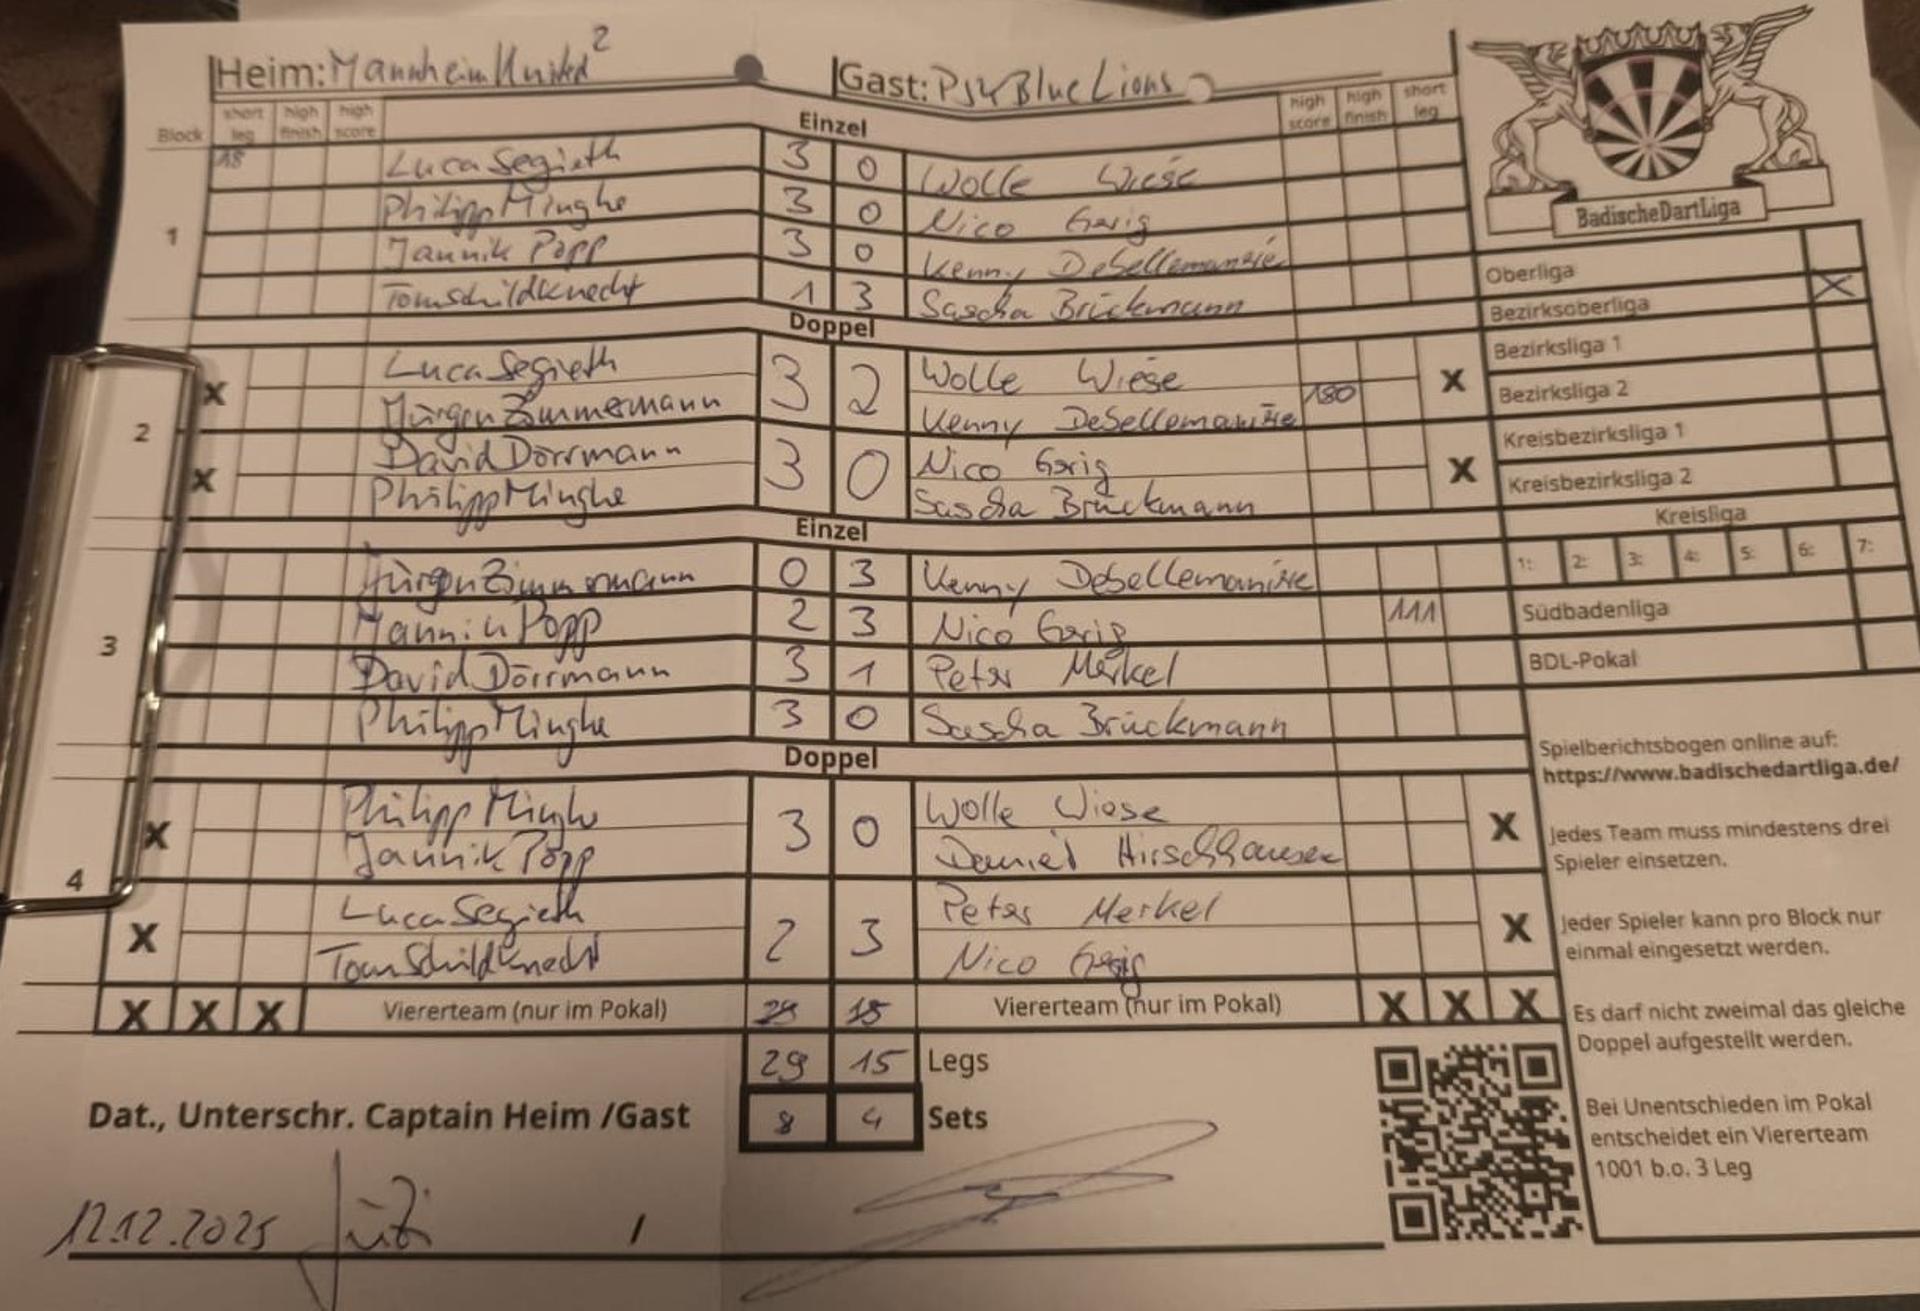 Heim: Mannheim United 2 Gast: PSV Blue Lions
Block short leg high finish high score Einzel high score high finish short leg
1
18 Luca Segieth 3 0 Wolle Wiese
Philipp Minghe 3 0 Nico Gerig
Jannik Popp 3 0 Kenny Desellemanière
Tom Schildknecht 1 3 Sascha Brückmann
Doppel
2
X Luca Segieth 3 2 Wolle Wiese X
Jürgen Zimmermann Kenny Desellemanière 180
X David Dörrmann 3 0 Nico Gerig X
Philipp Minghe Sascha Brückmann
Einzel
3
Jürgen Zimmermann 0 3 Kenny Desellemanière
Jannik Popp 2 3 Nico Gerig 111
David Dörrmann 3 1 Peter Merkel
Philipp Minghe 3 0 Sascha Brückmann
Doppel
4
X Philipp Minghe 3 0 Wolle Wiese X
Jannik Popp Daniel Hirschhausen
X Luca Segieth 2 3 Peter Merkel X
Tom Schildknecht Nico Gerig
X X X Vierterteam (nur im Pokal) 15 Vierterteam (nur im Pokal) X X X
29 15 Legs
8 4 Sets
Dat., Unterschr. Captain Heim /Gast
12.12.2025 /
BadischeDartLiga
Oberliga
Bezirksoberliga X
Bezirksliga 1
Bezirksliga 2
Kreisbezirksliga 1
Kreisbezirksliga 2
Kreisliga
1: 2: 3: 4: 5: 6: 7:
Südbadenliga
BDL-Pokal
Spielberichtsbogen online auf:
https://www.badischedartliga.de/
Jedes Team muss mindestens drei
Spieler einsetzen.
Jeder Spieler kann pro Block nur
einmal eingesetzt werden.
Es darf nicht zweimal das gleiche
Doppel aufgestellt werden.
Bei Unentschieden im Pokal
entscheidet ein Viererteam
1001 b.o. 3 Leg